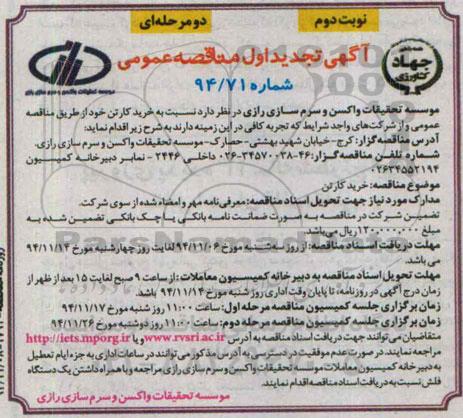 نوبت دوم
دو مرحله‌ای
آگهی تجدید اول مناقصه عمومی
شماره ۹۴/۷۱
جهاد
کشاورزی
موسسه تحقیقات واکسن و سرم سازی رازی
موسسه تحقیقات واکسن و سرم سازی رازی در نظر دارد نسبت به خرید کارتن خود از طریق مناقصه
عمومی و از شرکت‌های واجد شرایط که تجربه کافی در این زمینه دارند به شرح زیر اقدام نماید:
آدرس مناقصه گزار: کرج- خیابان شهید بهشتی- حصارک- موسسه تحقیقات واکسن و سرم سازی رازی.
شماره تلفن مناقصه گزار: ۴۶-۳۴۵۷۰۰۳۸-۰۲۶ داخلی ۲۴۴۶ - نمابر دبیرخانه کمیسیون
۰۲۶۳۴۵۵۲۱۹۴
موضوع مناقصه: خرید کارتن
مدارک مورد نیاز جهت تحویل اسناد مناقصه: معرفی نامه مهر و امضاء شده از سوی شرکت.
تضمین شرکت در مناقصه به صورت ضمانت نامه بانکی یا چک بانکی تضمین شده به
مبلغ ۱۲۰,۰۰۰,۰۰۰ ریال می‌باشد.
مهلت دریافت اسناد مناقصه: از روز سه‌شنبه مورخ ۹۴/۱۱/۰۶ لغایت روز چهارشنبه مورخ ۹۴/۱۱/۱۴
می باشد.
مهلت تحویل اسناد مناقصه به دبیرخانه کمیسیون معاملات: از ساعت ۹ صبح لغایت ۱۵ بعد از ظهر از
زمان درج آگهی در روزنامه، تا پایان وقت اداری روز شنبه مورخ ۹۴/۱۱/۱۴ باشد.
زمان برگزاری جلسه کمیسیون مناقصه مرحله اول: ساعت ۱۱:۰۰ روز شنبه مورخ ۹۴/۱۱/۱۷
زمان برگزاری جلسه کمیسیون مناقصه مرحله دوم: ساعت ۱۱:۰۰ روز دوشنبه مورخ ۹۴/۱۱/۲۶
متقاضیان می‌توانند جهت دریافت اسناد مناقصه به آدرس www.rvsri.ac.ir و یا http://iets.mporg.ir
مراجعه نمایند. در صورت عدم موفقیت در دسترسی به آدرس مذکور می‌توانند در ساعات اداری به جزء ایام تعطیل
به دبیرخانه کمیسیون معاملات موسسه تحقیقات واکسن و سرم سازی رازی مراجعه و با همراه داشتن یک دستگاه
فلش نسبت به دریافت اسناد مناقصه اقدام نمایند.
موسسه تحقیقات واکسن و سرم سازی رازی